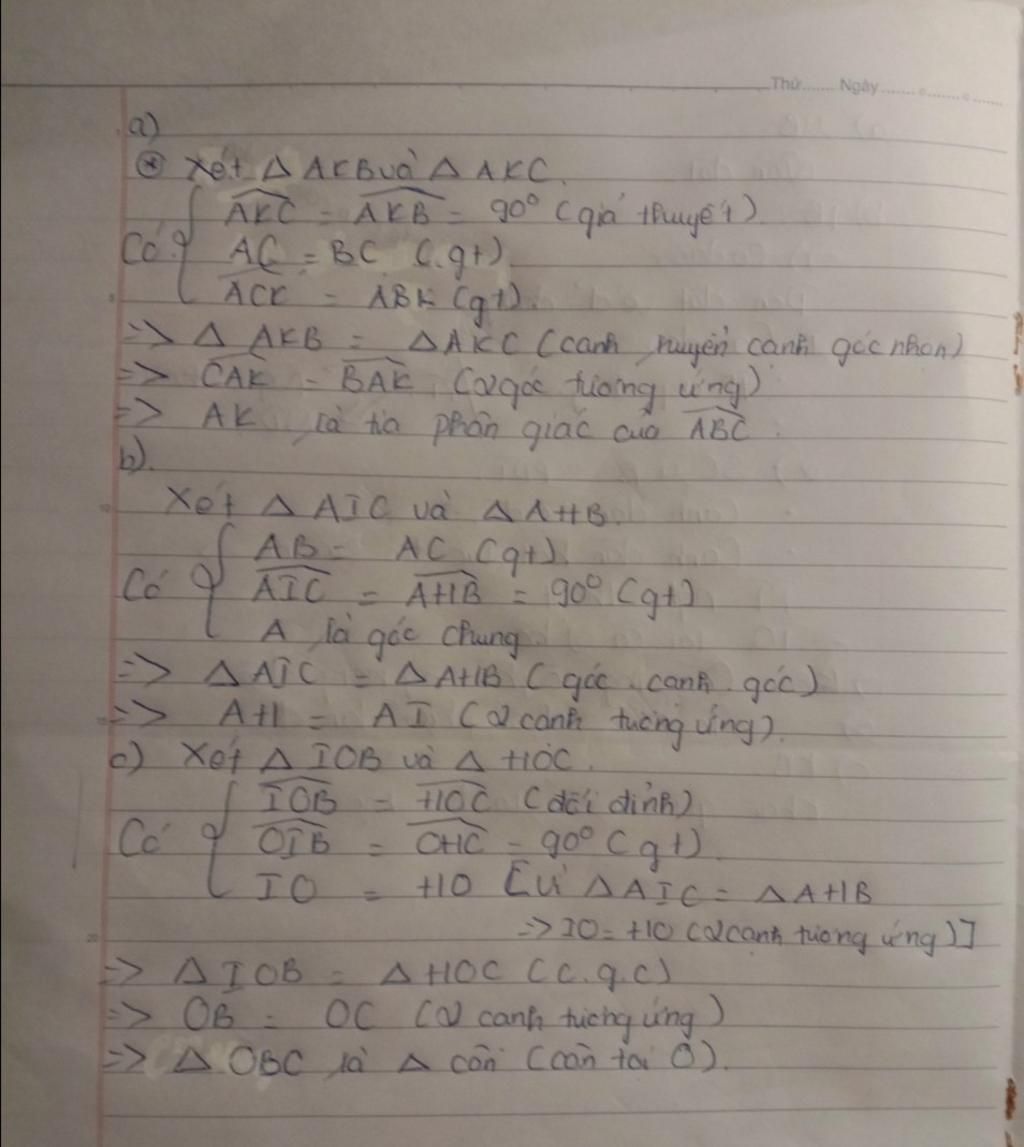 Thứ....... Ngày.......
a)
* Xét Δ AKB và Δ AKC.
AKC = AKB = 90° (giả thuyết)
Có: AC = BC (gt)
ACK = ABK (gt).
=> Δ AKB = Δ AKC (cạnh huyền cạnh góc nhọn)
=> CAK = BAK (2 góc tương ứng)
=> AK là tia phân giác của ABC.
b).
Xét Δ AIC và Δ AHB.
AB = AC (gt)
Có AIC = AHB = 90° (gt)
A là góc chung
=> Δ AIC = Δ AHB (góc cạnh góc)
=> AH = AI (2 cạnh tương ứng).
c) Xét Δ IOB và Δ HOC.
IOB = HOC (đối đỉnh)
Có OIB = OHC = 90° (gt)
IO = HO [Vì Δ AIC = Δ AHB
=> IO = HO (2 cạnh tương ứng)]
=> Δ IOB = Δ HOC (c.g.c)
=> OB = OC (2 cạnh tương ứng)
=> Δ OBC là Δ cân (cân tại O).